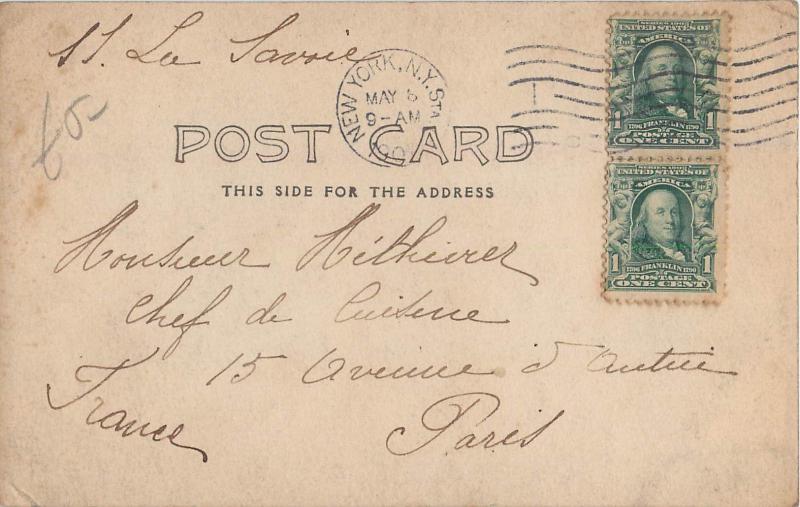 S.S. La Savoie
NEW YORK, N.Y. STA
MAY
9-AM
POST CARD
THIS SIDE FOR THE ADDRESS
Monsieur
Chef de Cuisine
15 Avenue d'Antin
Paris
France
SERIES 1902
UNITED STATES OF
AMERICA
1 1
1706 FRANKLIN 1790
POSTAGE
ONE CENT
SERIES 1902
UNITED STATES OF
AMERICA
1 1
1706 FRANKLIN 1790
POSTAGE
ONE CENT